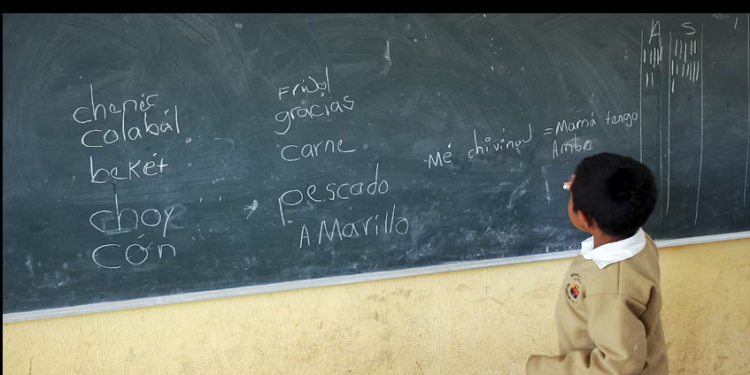 chenic
colabál
bekét
choy
con
Frijol
gracias
carne
pescado
AMarillo
Mé chivinaj = Mamá tengo
Ambre
A S